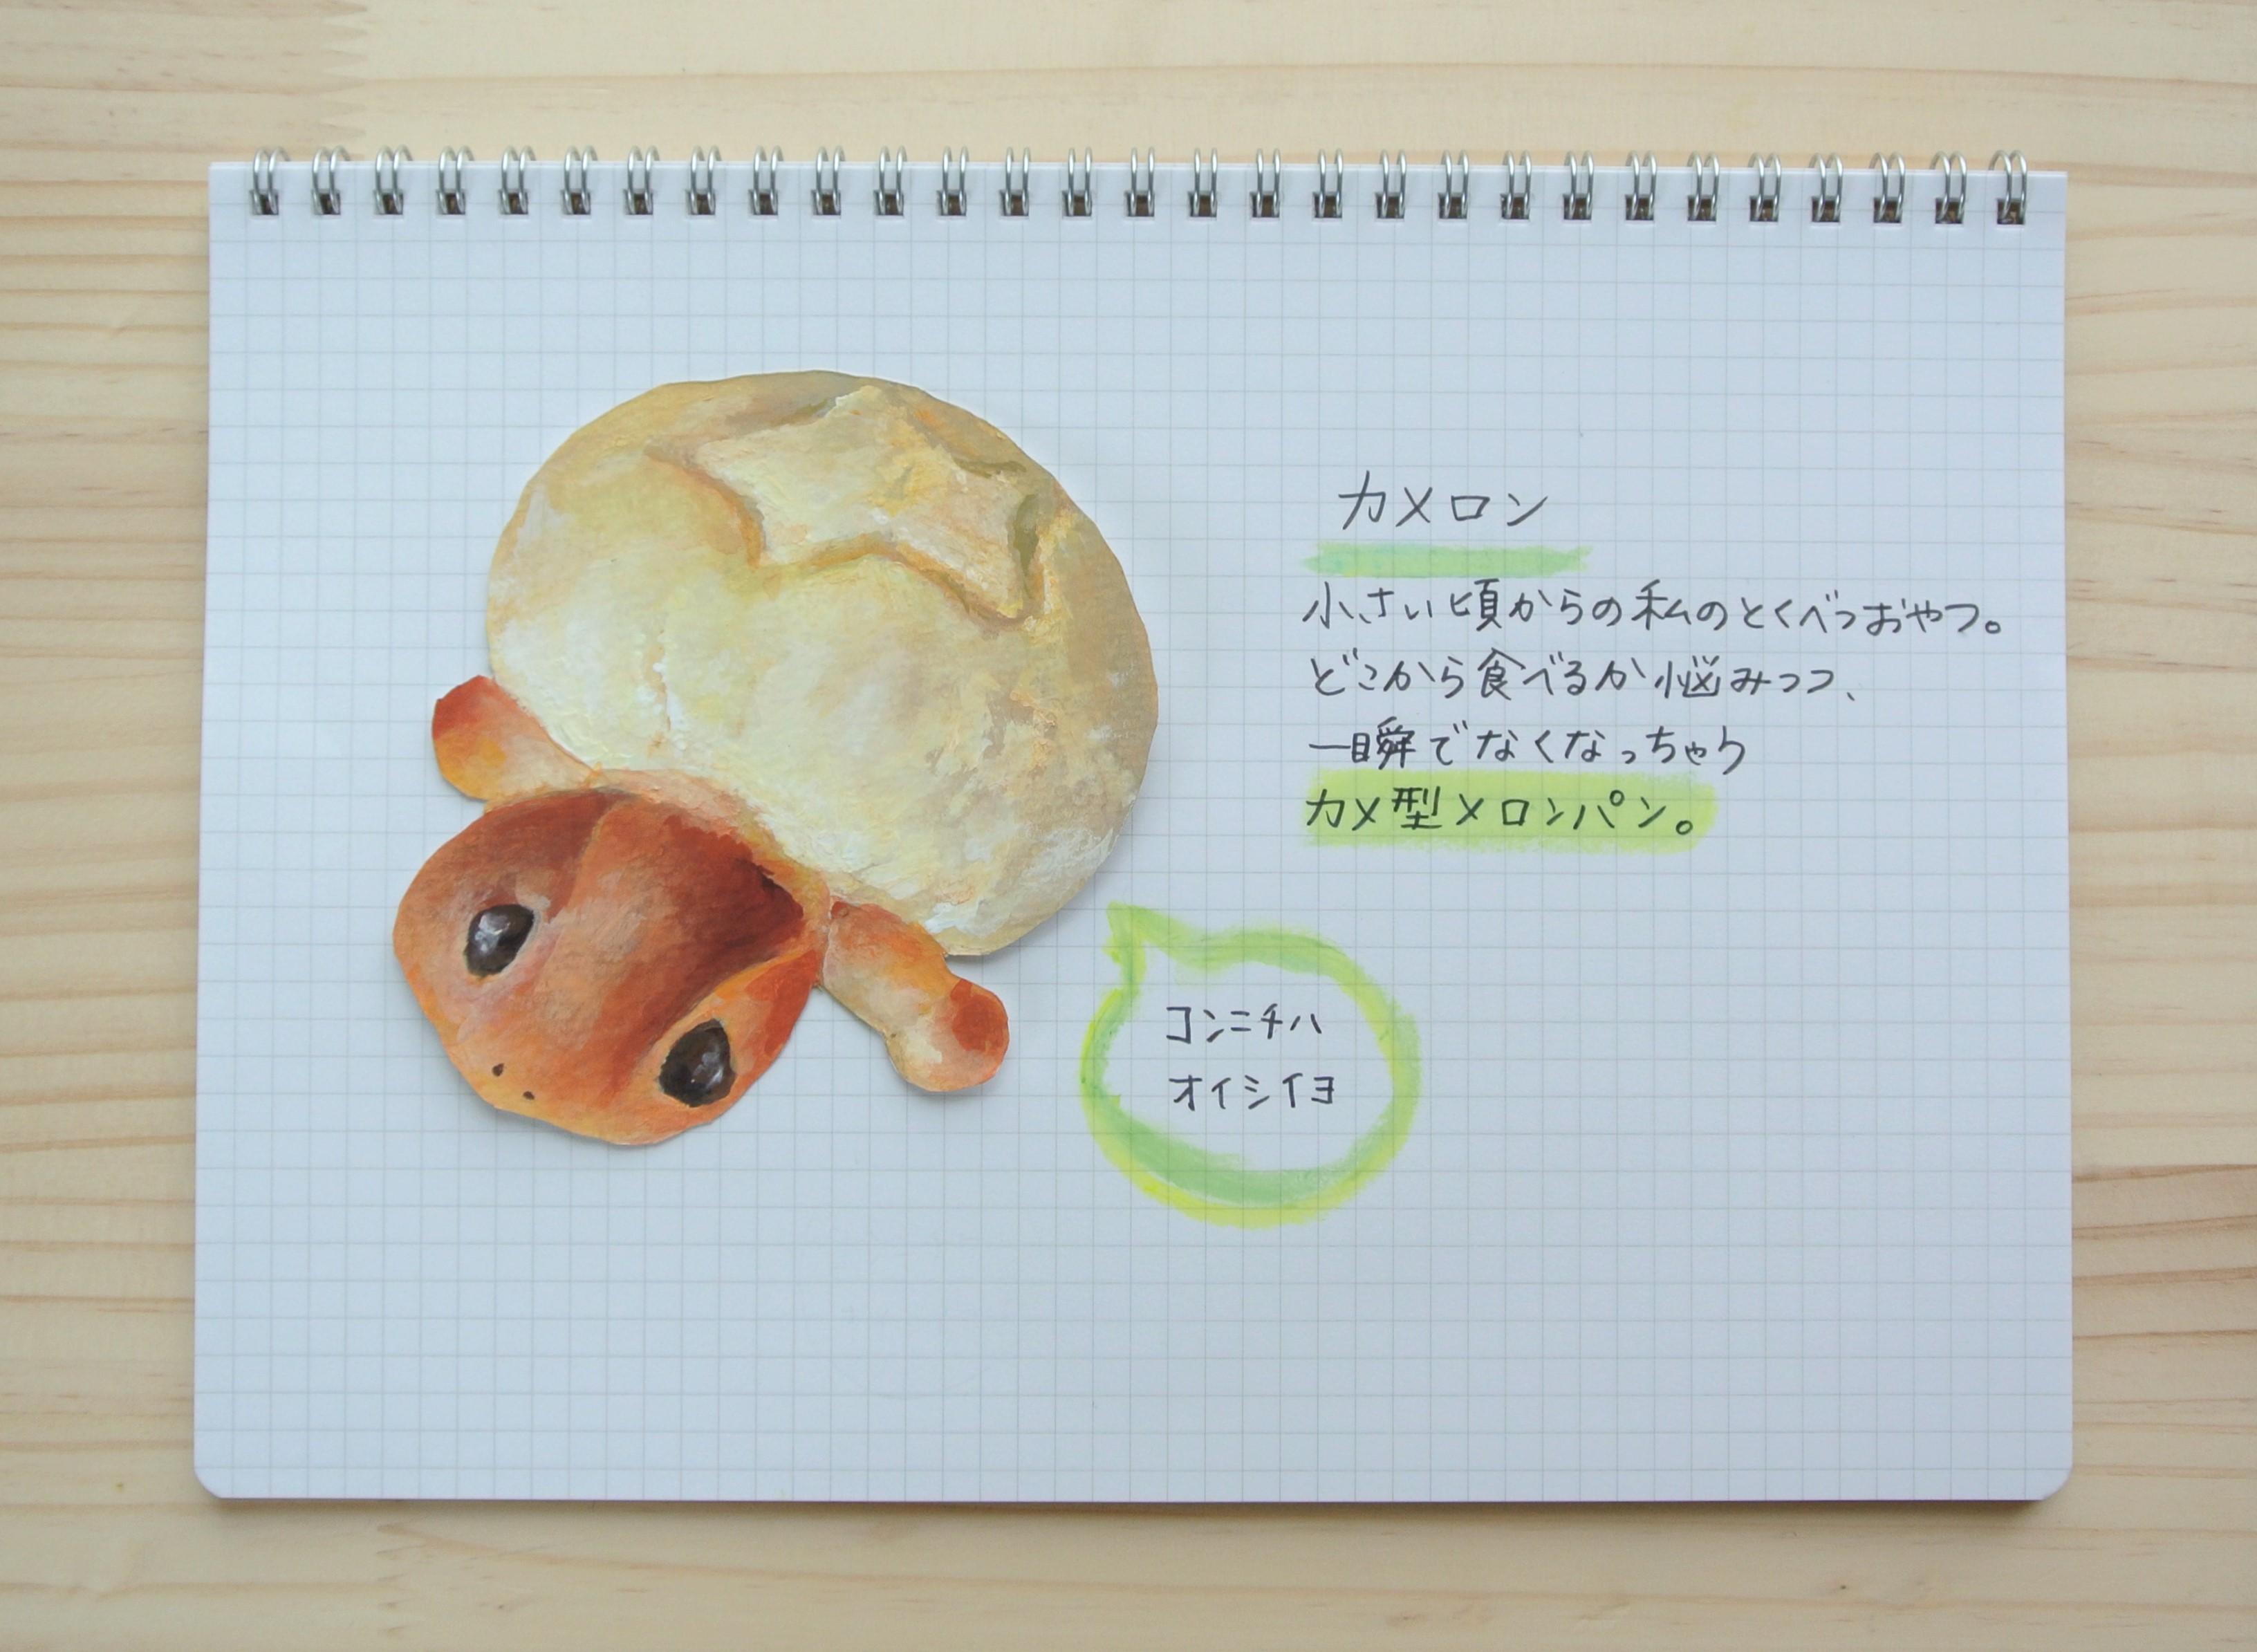 カメロン
小さい頃からの私のとくべつおやつ。
どこから食べるか悩みつつ、
一瞬でなくなっちゃう
カメ型メロンパン。
コンニチハ
オイシイヨ